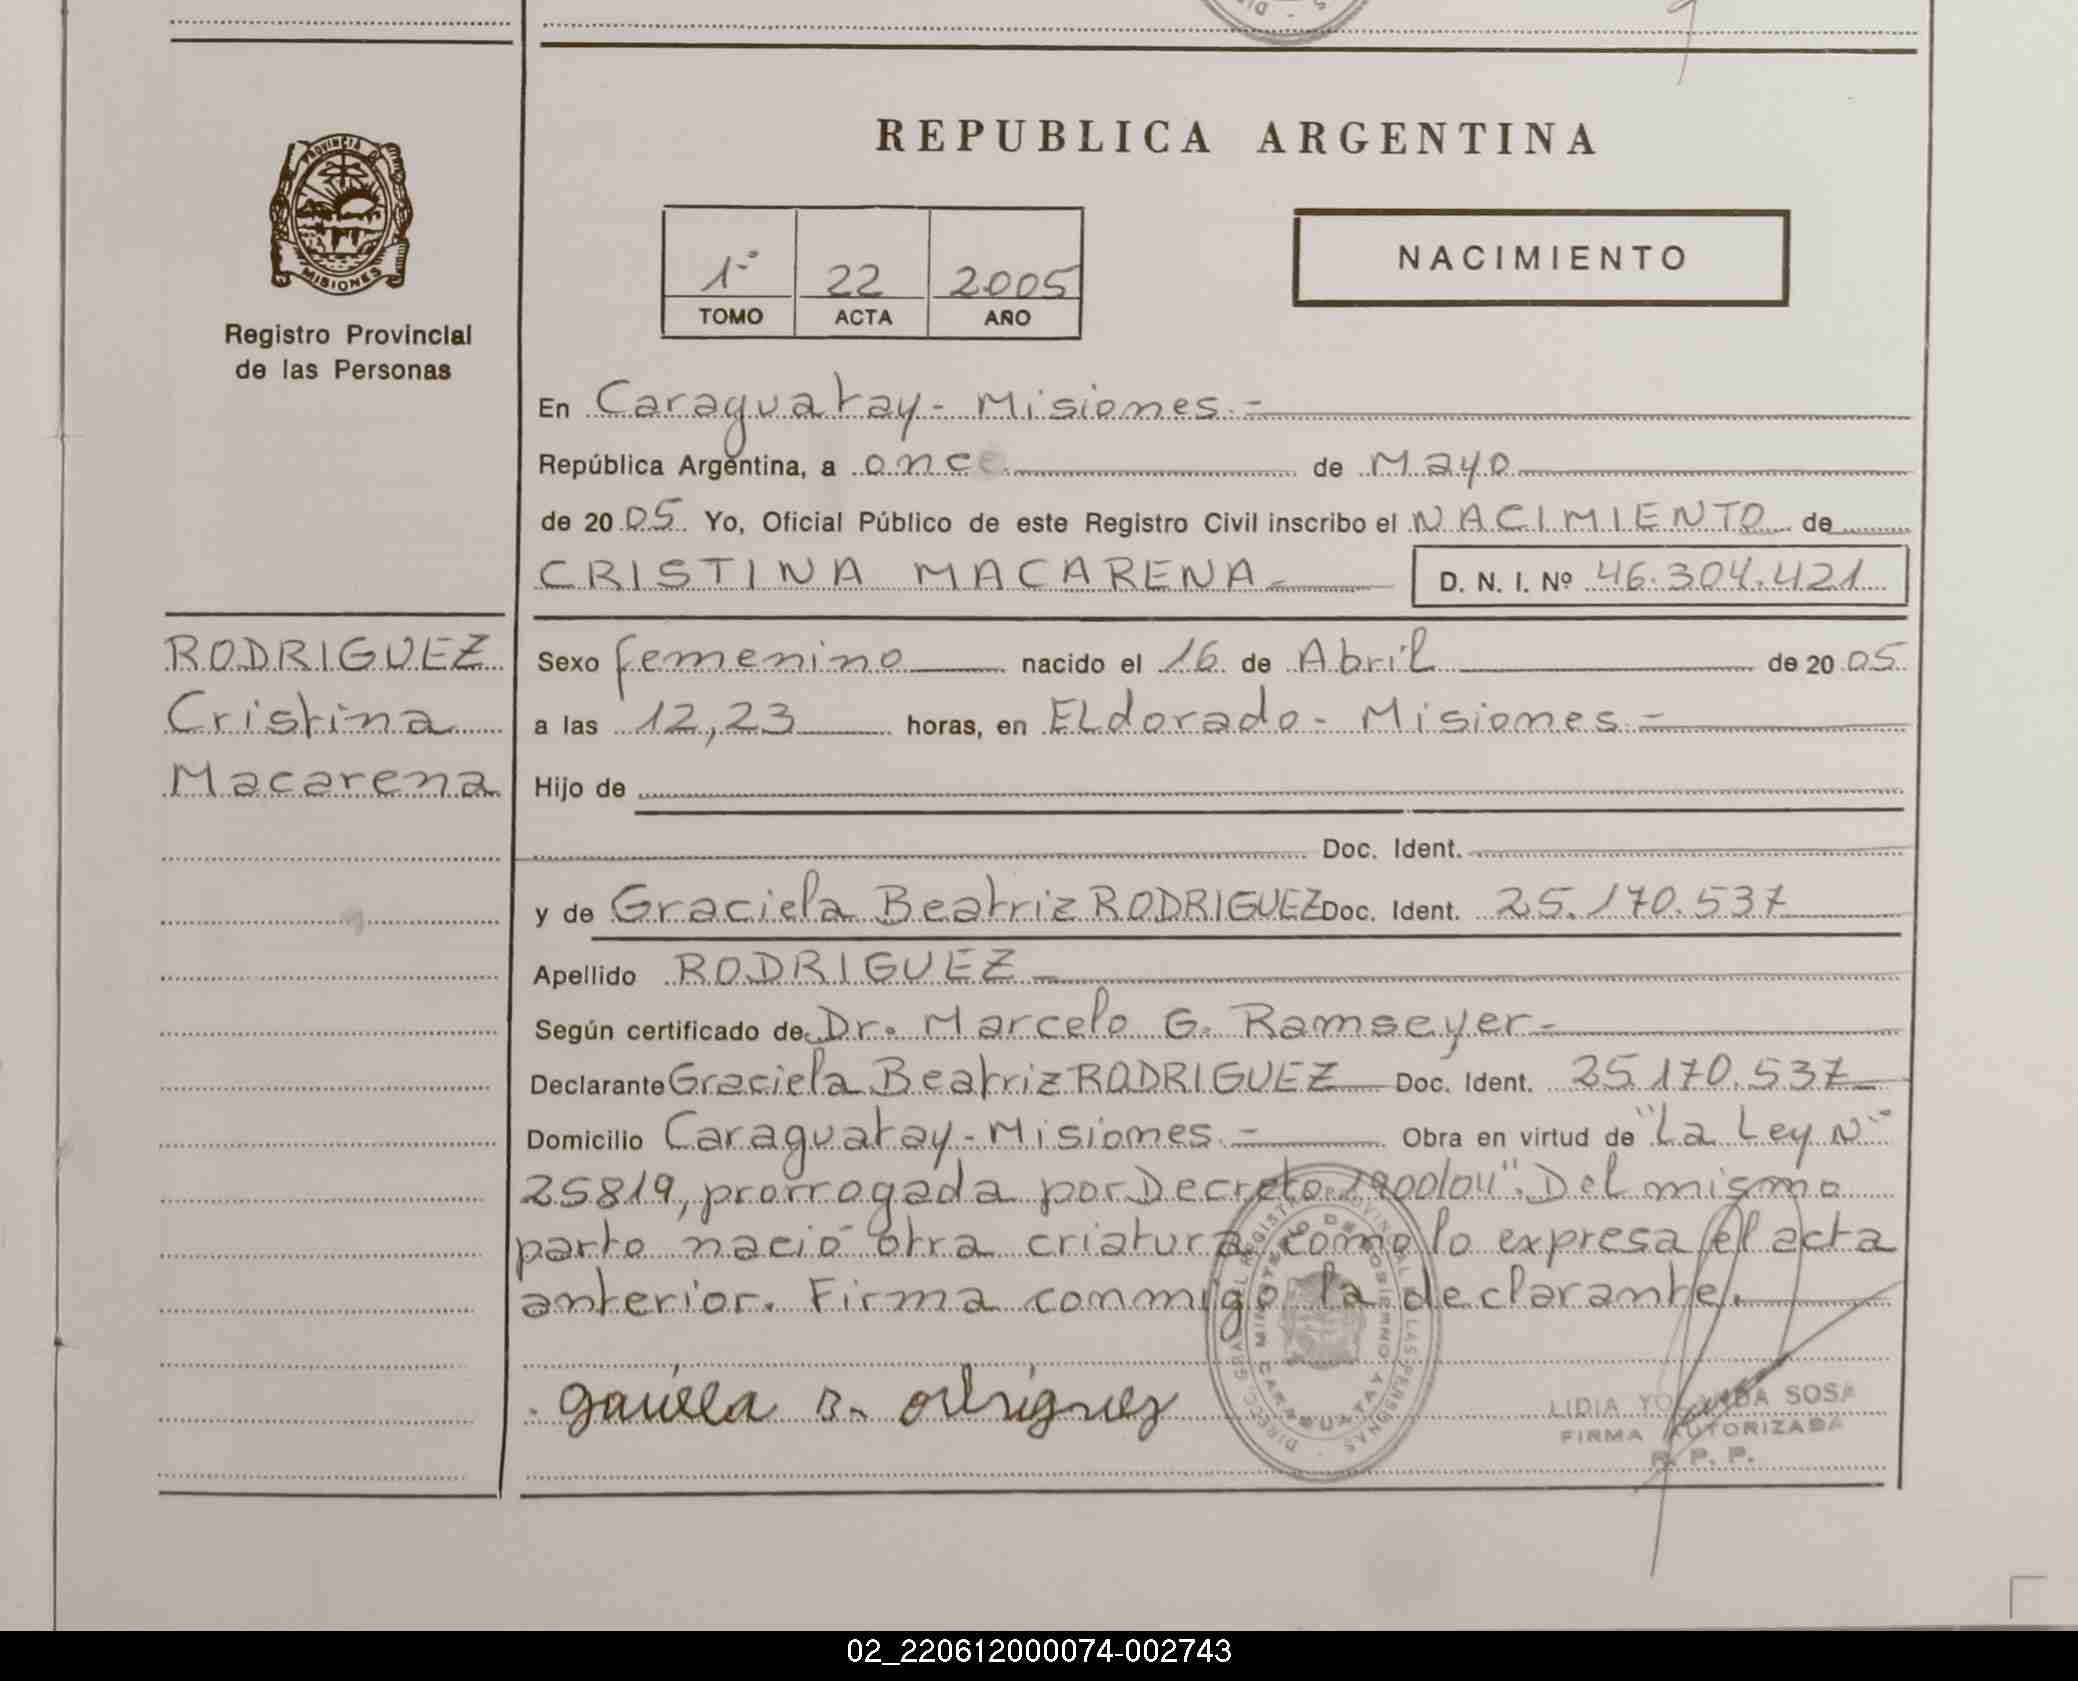 REPUBLICA ARGENTINA
PROVINCIA DE
MISIONES
Registro Provincial
de las Personas
1º 22 2005
TOMO ACTA AÑO
NACIMIENTO
En Caraguatay - Misiones.-
República Argentina, a once de Mayo
de 2005 Yo, Oficial Público de este Registro Civil inscribo el NACIMIENTO de
CRISTINA MACARENA.- D. N. I. Nº 46.304.421
RODRIGUEZ
Cristina
Macarena
Sexo femenino nacido el 16 de Abril de 2005
a las 12,23 horas, en ELdorado - Misiones.-
Hijo de
Doc. Ident.
y de Graciela Beatriz RODRIGUEZ Doc. Ident. 25.170.537
Apellido RODRIGUEZ.-
Según certificado de Dr. Marcelo G. Ramseyer.-
Declarante Graciela Beatriz RODRIGUEZ Doc. Ident. 25.170.537
Domicilio Caraguatay - Misiones.- Obra en virtud de "La Ley Nº
25819, prorrogada por Decreto 1900/04". Del mismo
parto nació otra criatura como lo expresa el acta
anterior. Firma conmigo la declarante.
LIDIA YOLANDA SOSA
FIRMA AUTORIZADA
R. P. P.
02_220612000074-002743